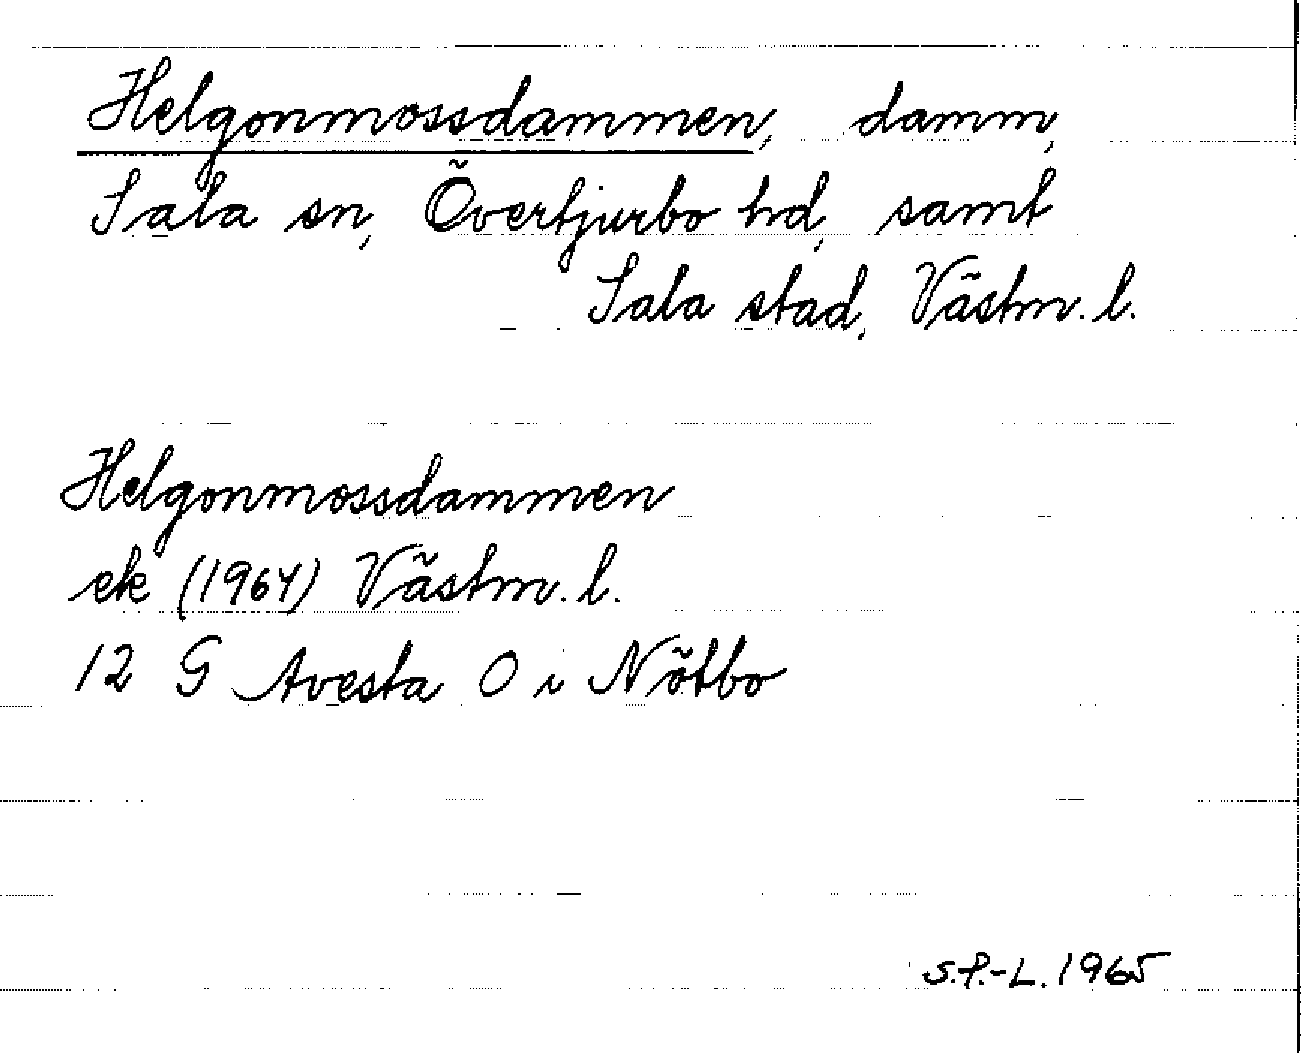 Helgonmossdammen, damm,
Sala sn, Övertjurbo hd, samt
Sala stad, Västm. l.
Helgonmossdammen
ek (1964) Västm. l.
12 G Avesta O i Nötbo
S.P.-L. 1965